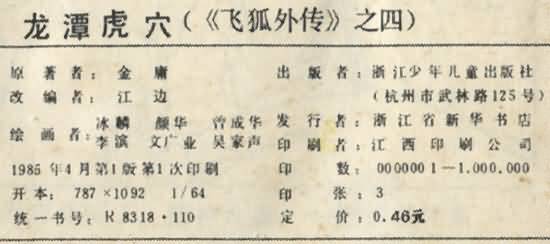 龙潭虎穴(《飞狐外传》之四)
原著者:金庸
改编者:江边
绘画者:冰麟 颜华 曾成华
李滨 文广业 吴家声
1985年4月第1版第1次印刷
开本:787×1092 1/64
统一书号:R8318·110
出版者:浙江少年儿童出版社
(杭州市武林路125号)
发行者:浙江省新华书店
印刷者:江西印刷公司
印数:0000001—1.000.000
印张:3
定价:0.46元